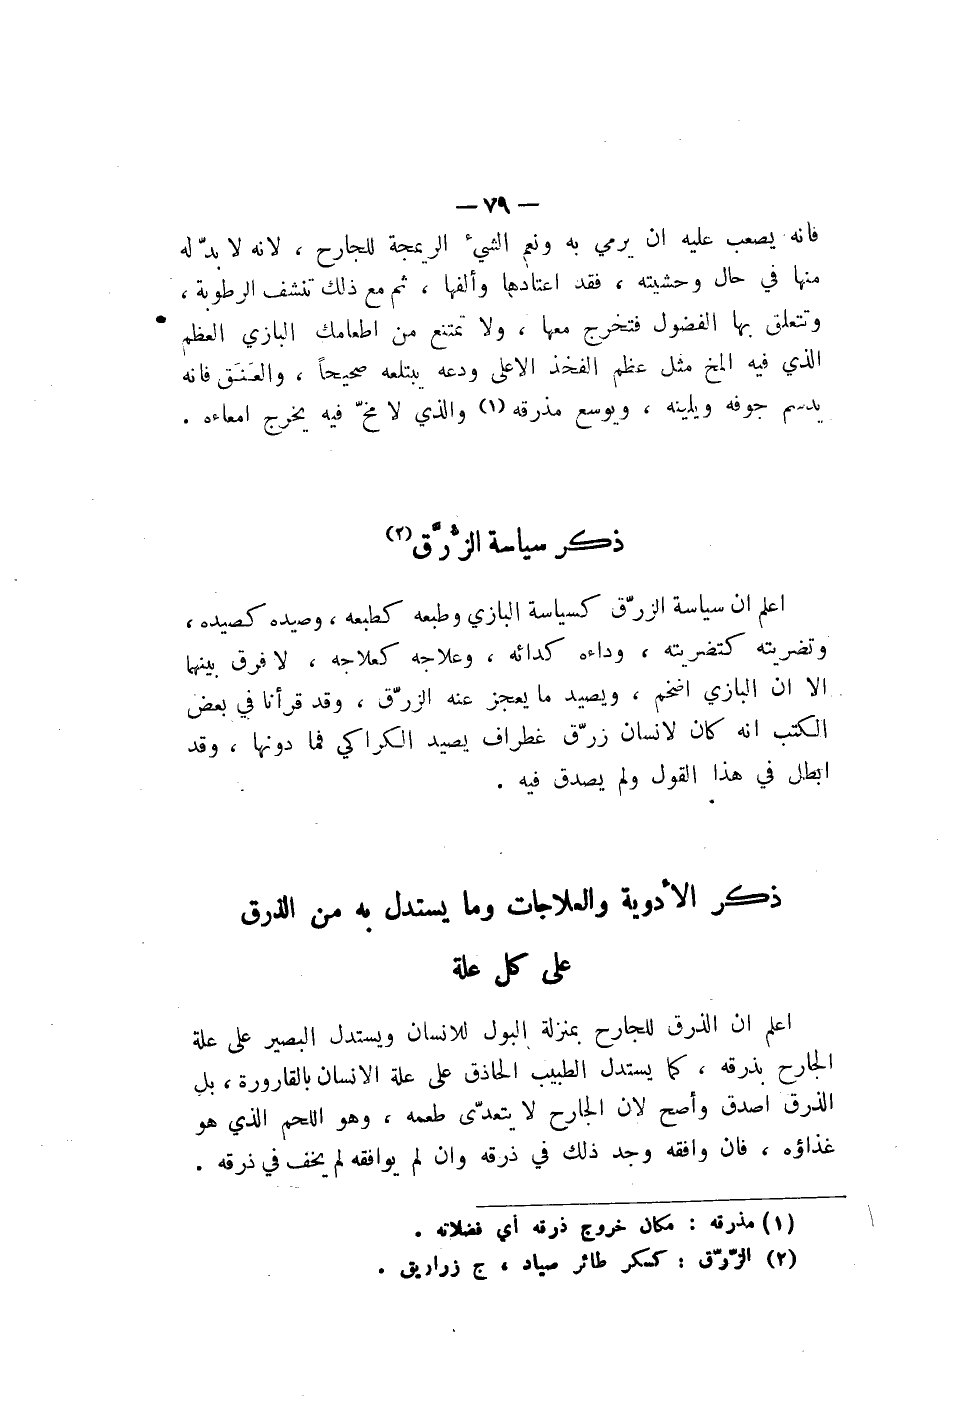 — ٧٩ —
فانه يصعب عليه ان يرمي به ونعم الشيء الريمجة للجارح ، لانه لا بدّ له
منها في حال وحشيته ، فقد اعتادها وألفها ، ثم مع ذلك تنشف الرطوبة ،
وتتعلق بها الفضول فتخرج معها ، ولا تمتنع من اطعامك البازي العظم
الذي فيه المخ مثل عظم الفخذ الاعلى ودعه يبتلعه صحيحاً ، والعَنَق فانه
يدسم جوفه ويلينه ، ويوسع مذرقه (١) والذي لا مخّ فيه يخرج امعاءه .
ذكر سياسة الزُرَّق (٢)
اعلم ان سياسة الزرّق كسياسة البازي وطبعه كطبعه ، وصيده كصيده ،
وتضريته كتضريته ، وداءه كدائه ، وعلاجه كعلاجه ، لا فرق بينهما
الا ان البازي اضخم ، ويصيد ما يعجز عنه الزرّق ، وقد قرأنا في بعض
الكتب انه كان لانسان زرّق غطراف يصيد الكراكي فما دونها ، وقد
ابطل في هذا القول ولم يصدق فيه .
ذكر الأدوية والعلاجات وما يستدل به من الذرق
على كل علة
اعلم ان الذرق للجارح بمنزلة البول للانسان ويستدل البصير على علة
الجارح بذرقه ، كما يستدل الطبيب الحاذق على علة الانسان بالقارورة ، بل
الذرق اصدق وأصح لان الجارح لا يتعدّى طعمه ، وهو اللحم الذي هو
غذاؤه ، فان وافقه وجد ذلك في ذرقه وان لم يوافقه لم يخف في ذرقه .
(١) مذرقه : مكان خروج ذرقه أي فضلاته .
(٢) الزّرّق : كسكر طائر صياد ، ج زراريق .